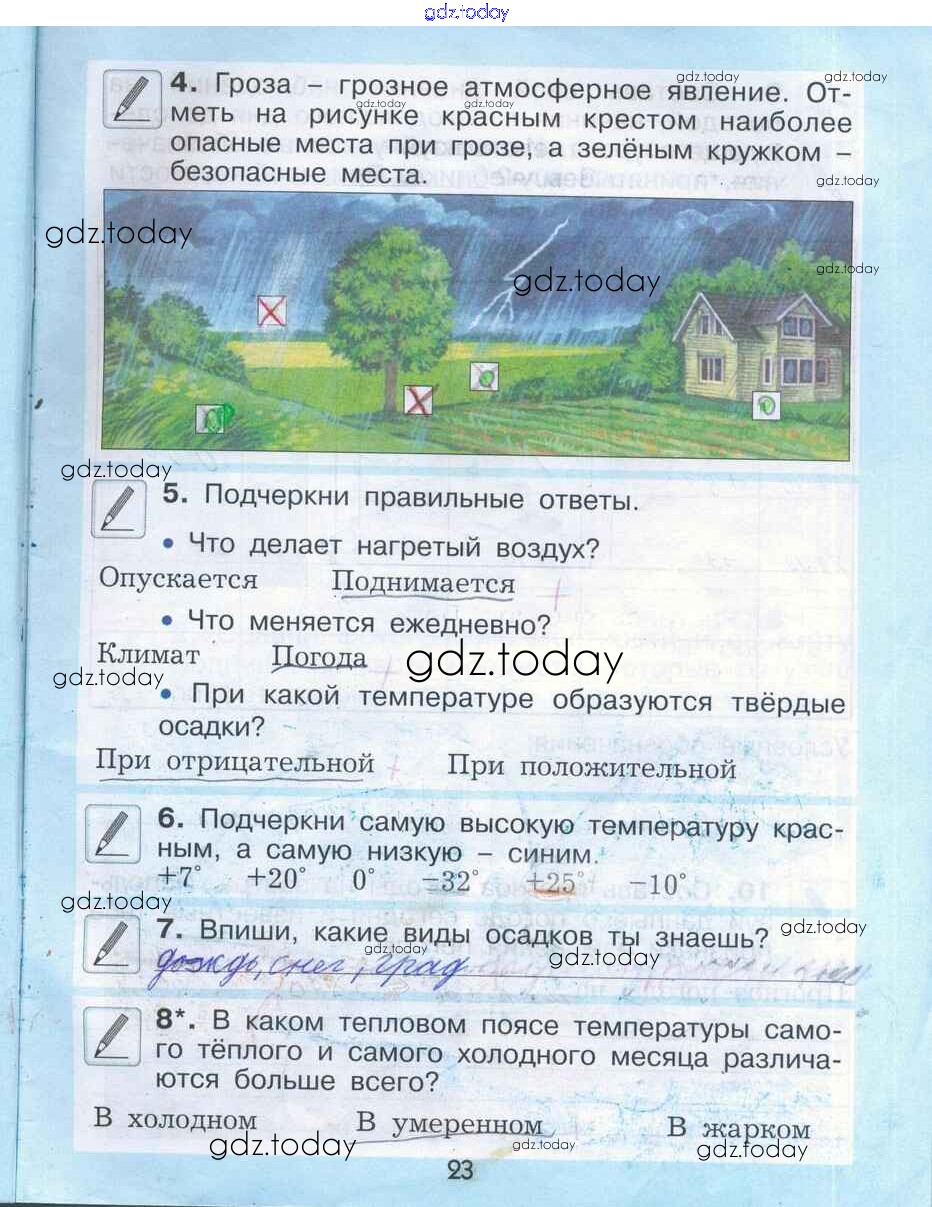 gdz.today
4. Гроза – грозное атмосферное явление. От-
gdz.today
gdz.today
меть на рисунке красным крестом наиболее
gdz.today
gdz.today
опасные места при грозе, а зелёным кружком –
безопасные места.
gdz.today
gdz.today
gdz.today
gdz.today
gdz.today
5. Подчеркни правильные ответы.
• Что делает нагретый воздух?
Опускается Поднимается
• Что меняется ежедневно?
Климат Погода
gdz.today
gdz.today
• При какой температуре образуются твёрдые
осадки?
При отрицательной При положительной
6. Подчеркни самую высокую температуру крас-
ным, а самую низкую – синим.
+7° +20° 0° −32° +25° −10°
gdz.today
7. Впиши, какие виды осадков ты знаешь?
gdz.today
gdz.today
gdz.today
дождь, снег, град
8*. В каком тепловом поясе температуры само-
го тёплого и самого холодного месяца различа-
ются больше всего?
В холодном В умеренном В жарком
gdz.today
gdz.today
gdz.today
23